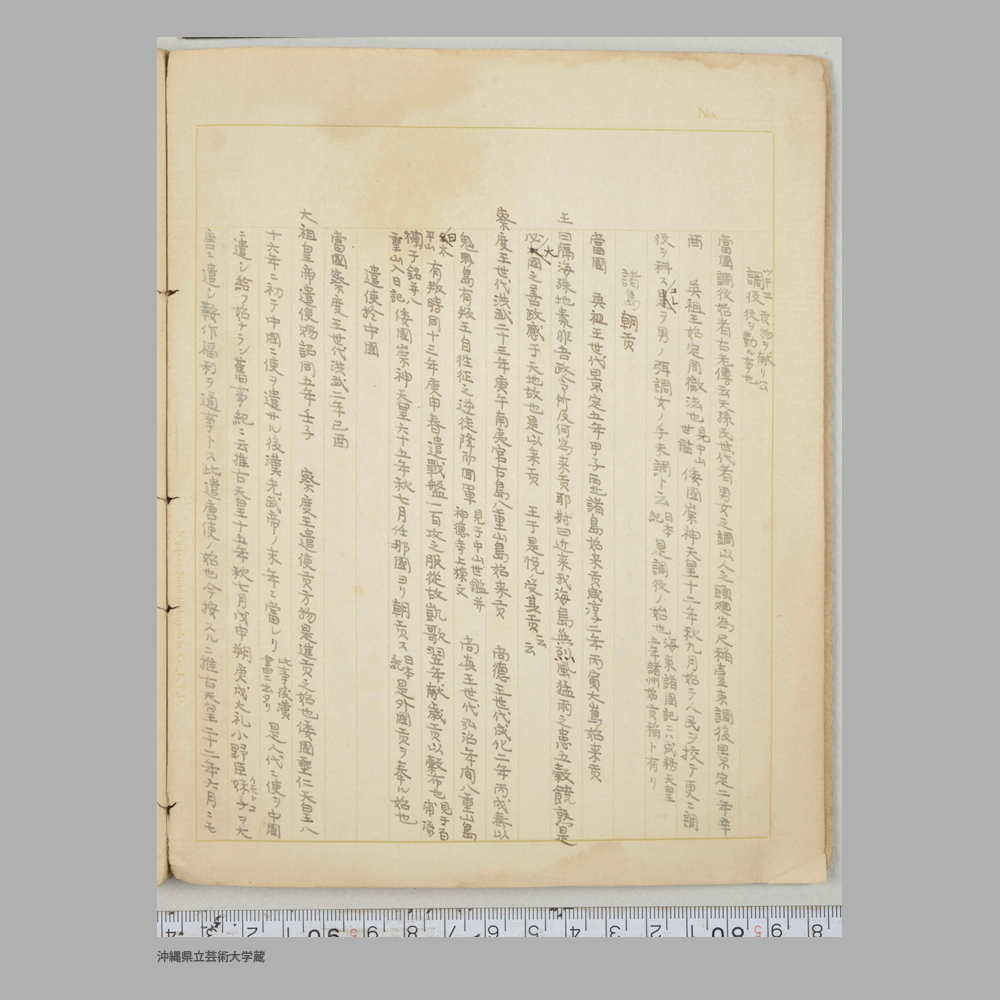 No.
ツキエ 貢物ヲ献リ公
調役 役ヲ勤ル事也
當國調役始者古老傳云天孫氏世代者男女之調以人之頭廻為尺稲臺束調後景定二年辛
酉 英祖王始定周徹法也 見中山世鑑 倭國崇神天皇十二年秋九月始テ人民ヲ校テ更ニ調
役ヲ科ス 男ノ弭調女ノ手末調ト云 日本紀 是調役ノ始也 海東諸國記ニハ成務天皇五年諸州始貢稲ト有リ
諸島 朝貢
當國 英祖王世代景定五年甲子西北諸島始来貢咸淳二年丙寅大島始来貢
王曰隔海殊地素非吾政令所及何為来貢耶對曰近来我海島無烈風猛雨之患五穀饒熟是
必大國之善政感于天地故也是以来貢 王于是悦受其貢云云
察度王世代洪武二十三年庚午南夷宮古島八重山島始来貢 尚徳王世代成化二年丙戌無以
鬼界島有叛王自往征之逆徒降而囬軍 見于中山世鑑并神徳寺上樑文 尚真王世代弘治年间八重山島
有叛時同十三年庚申春遣戰艦一百攻之服従故凱歌翌年献歳貢以績布也 見于百浦添
欄干銘并八重山入日記 倭國崇神天皇六十五年秋七月任那國ヨリ朝貢ス 日本紀 是外國貢ヲ奉ル始也
遣使於中國
當國察度王世代洪武二年己酉
大祖皇帝遣使賜詔同五年壬子 察度王遣使貢方物是進貢之始也倭國垂仁天皇八
十六年ニ初テ中國ニ使ヲ遣サル後漢光武帝ノ末年ニ當レリ 此事後漢書ニ出タリ 是人代ニ使ヲ中國
ニ遣シ給フ始ナラン舊事紀ニ云推古天皇十五年秋七月戊申朔庚戌大礼小野臣妹子ヲ大
唐ニ遣シ鞍作福利ヲ通事トス此遣唐使ノ始也今按スルニ推古天皇二十二年六月ニモ
沖縄県立芸術大学蔵